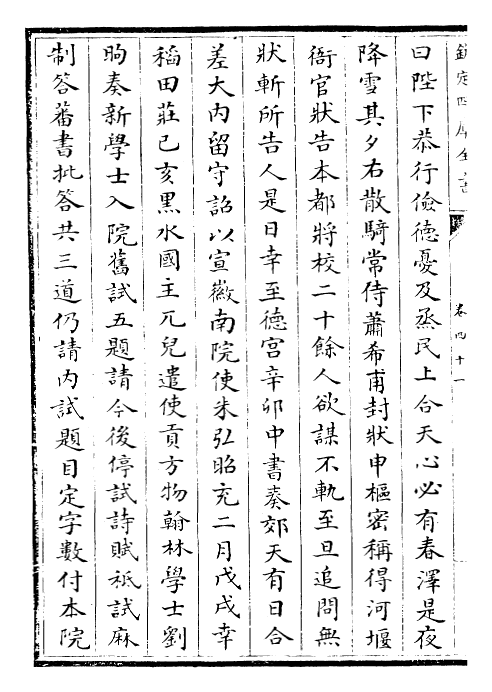 欽定四庫全書
卷四十一
曰陛下恭行儉德憂及烝民上合天心必有春澤是夜
降雪其夕右散騎常侍蕭希甫封狀申樞密稱得河堰
衙官狀告本都將校二十餘人欲謀不軌至旦追問無
狀斬所告人是日幸至德宫辛卯中書奏郊天有日合
差大内留守詔以宣徽南院使朱弘昭充二月戊戌幸
稻田莊己亥黑水國主兀兒遣使貢方物翰林學士劉
昫奏新學士入院舊試五題請今後停試詩賦祗試麻
制答蕃書批答共三道仍請内試題目定字數付本院